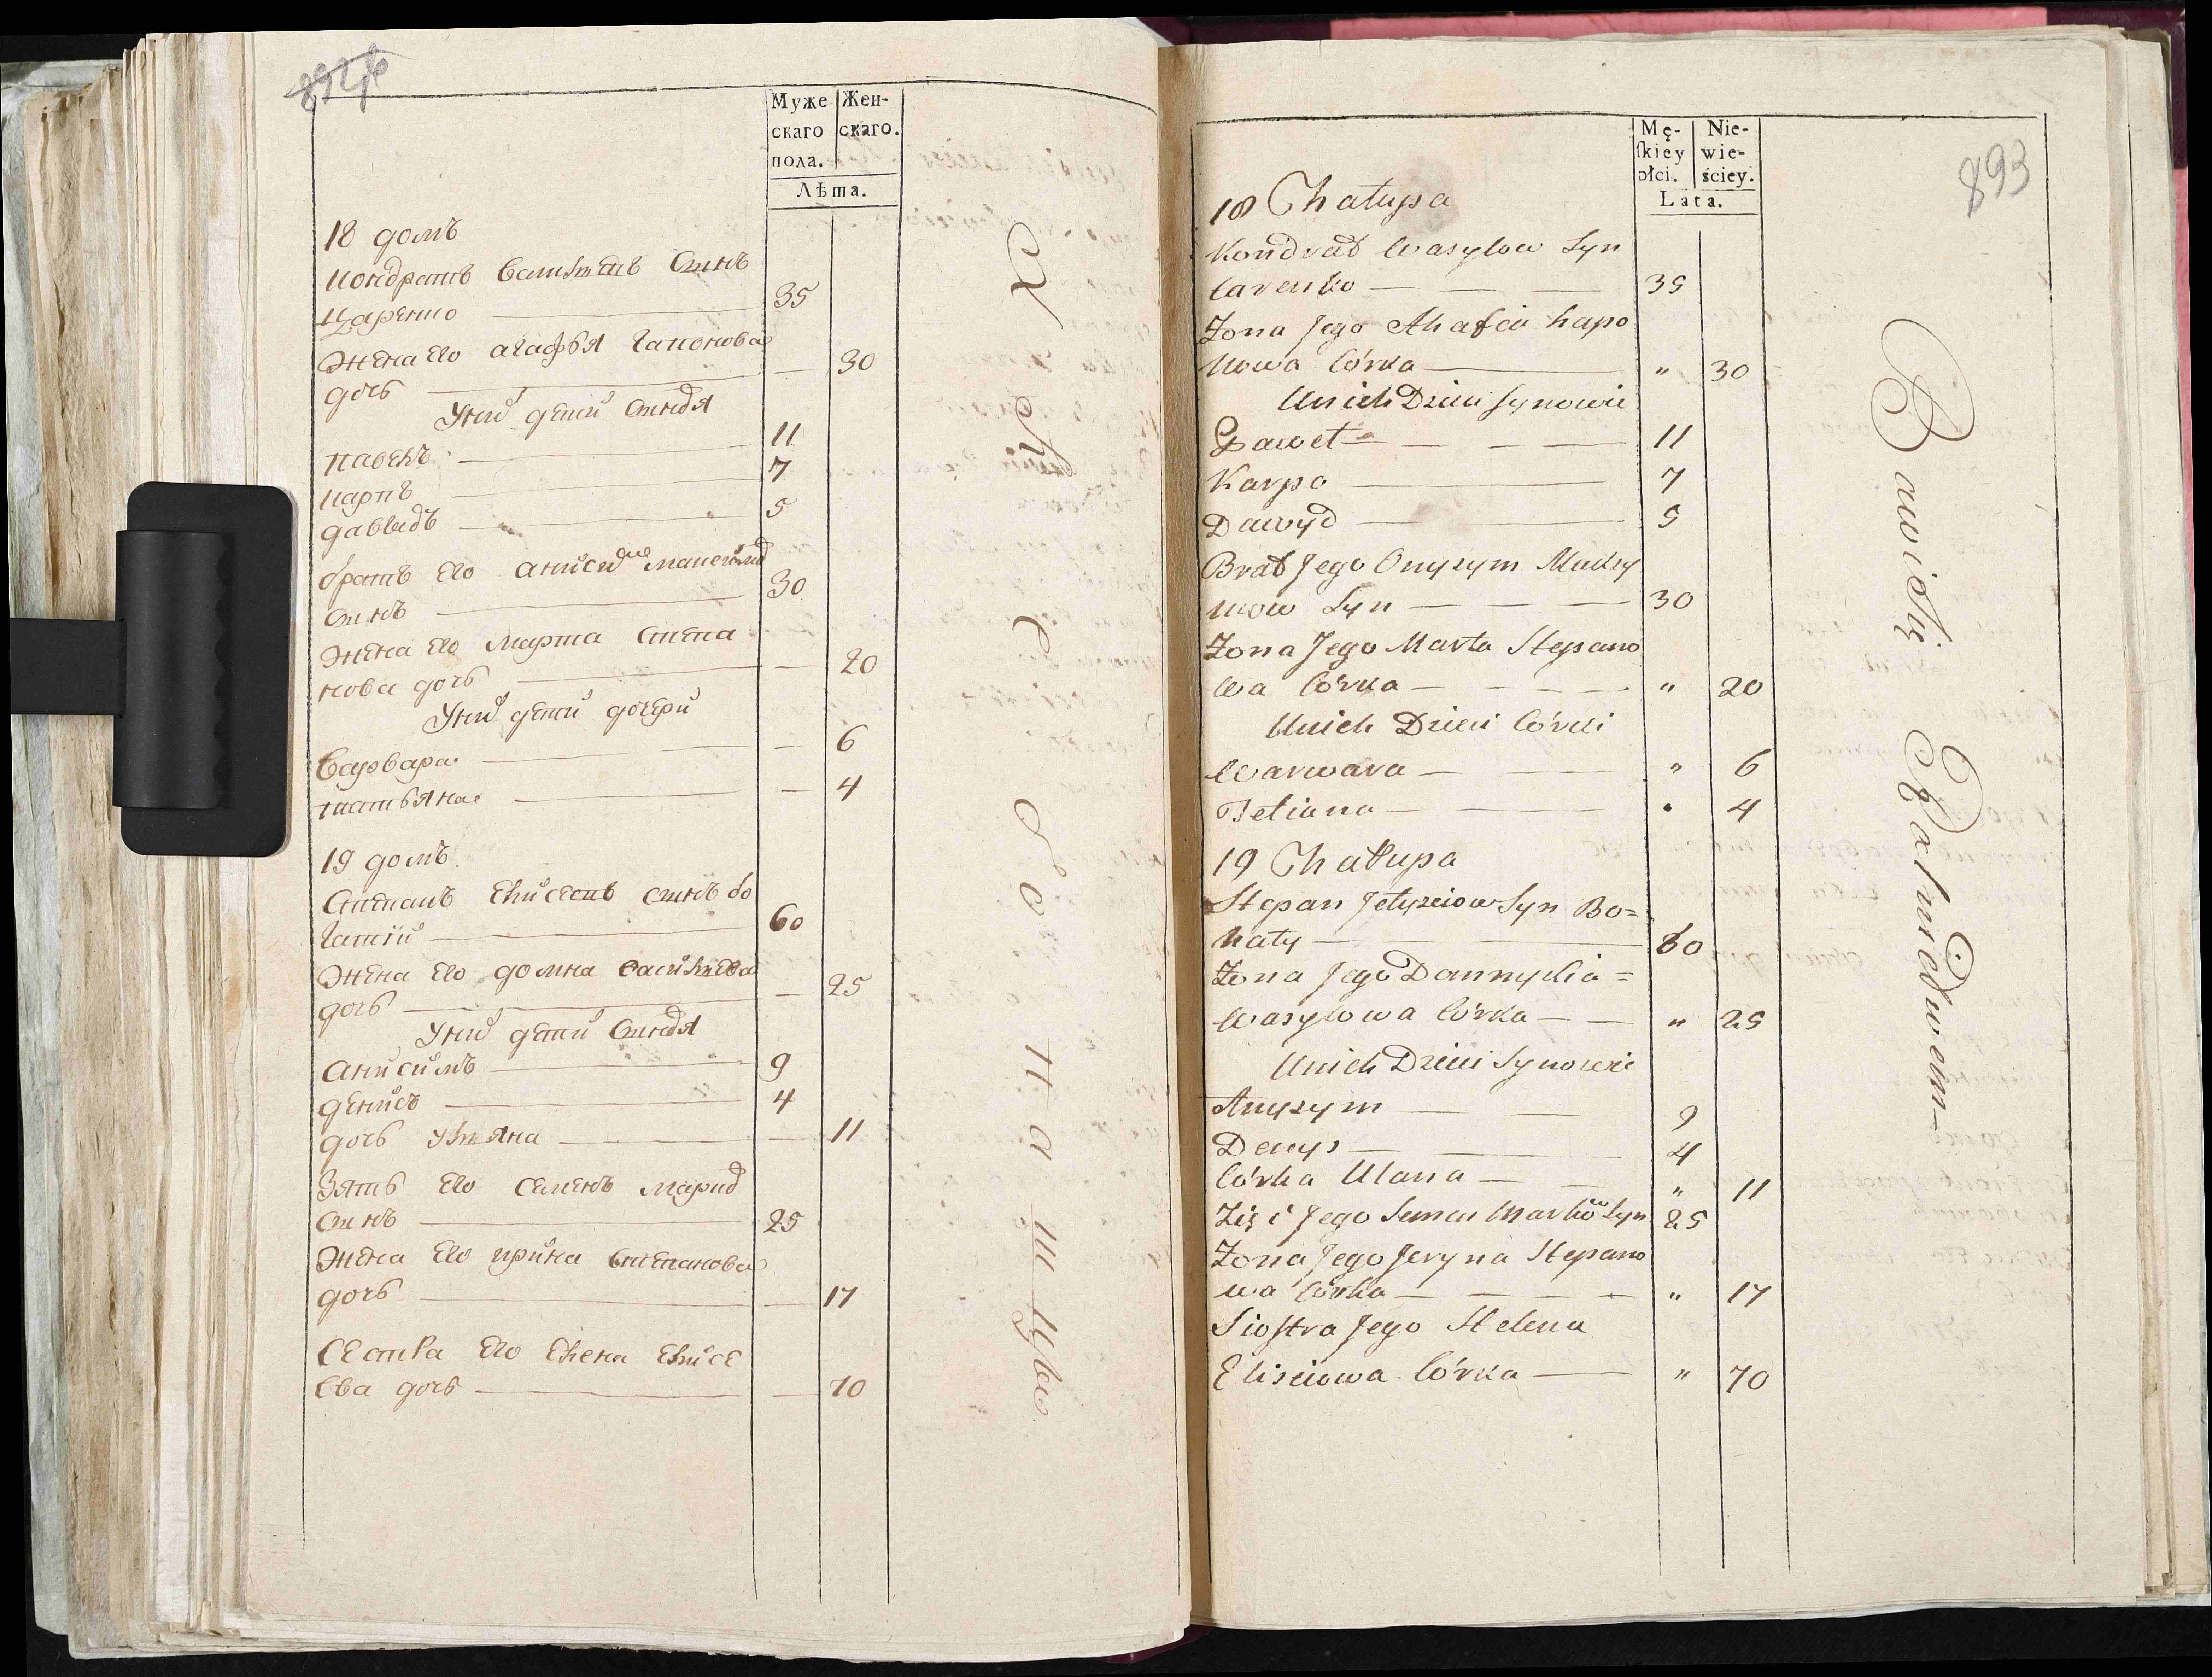 Муже Жен-
скаго скаго.
пола.
Лѣта.
18 домъ
Кондратъ Васильевъ Сынъ
Царенко 35
Жена Его агафья Гапонова
дочь — 30
У них дети Сыновя
павелъ 11
карпъ 7
давыдъ 5
братъ Его анисим
Сынъ 30
Жена Его Марта Степа
нова дочь — 20
У них дети дочери
Варвара — 6
татьяна — 4
19 домъ
Степанъ Елисеевъ Сынъ бо
гатий 60
Жена Его домна васильева
дочь — 25
У них дети Сыновя
Анисимъ 9
денисъ 4
дочь Ульяна — 11
Зять Его Семенъ марков
Сынъ 25
Жена Его ирина Степанова
дочь — 17
Сестра Его Елена Елисе
ева дочь — 70
893
Mę- Nie-
ſkiey wie-
płci. ściey.
Lata.
18 Chałupa
Kondrat Wasylow Syn
Carenko 35
Żona Jego Ahafia hapo
nowa Córka " 30
Unich Dzieci Synowie
Paweł 11
Karpo 7
Dawyd 5
Brat Jego Onyzym Maksy
mow Syn 30
Żona Jego Marta Stepano
wa Córka " 20
Unich Dzieci Córki
Warwara " 6
Tetiana " 4
19 Chałupa
Stepan Jełyzeiow Syn Bo=
haty 60
Żona Jego Domnykia=
Wasylowa Córka " 25
Unich Dzieci Synowie
Anyzym 9
Denys 4
Córka Ulana " 11
Zięć Jego Semen Markow Syn 25
Żona Jego Jeryna Stepano
wa Córka " 17
Siostra Jego Helena
Elisciowa Córka " 70